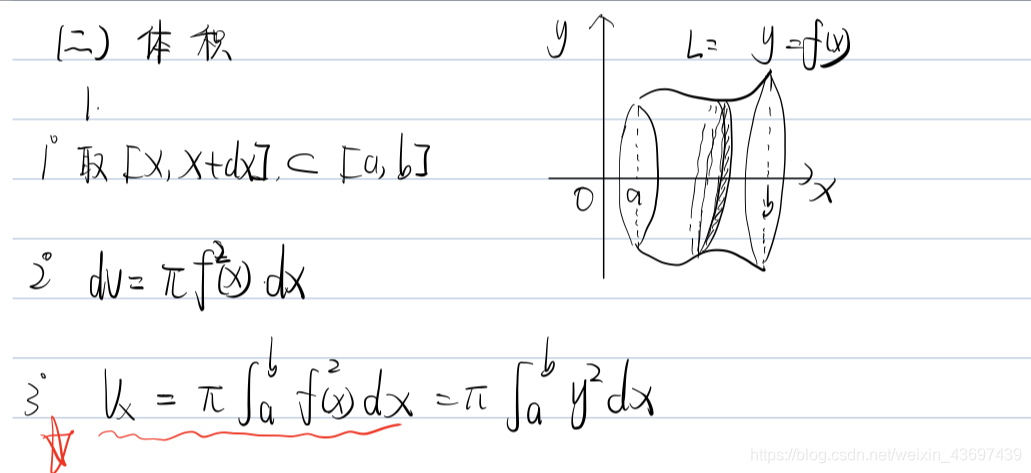 (二) 体积
1.
1° 取 [x, x+dx] ⊂ [a, b]
2° dv = π f²(x) dx
3° Vx = π ∫ₐᵇ f²(x) dx = π ∫ₐᵇ y² dx
y
L= y = f(x)
0 a b x
https://blog.csdn.net/weixin_43697439